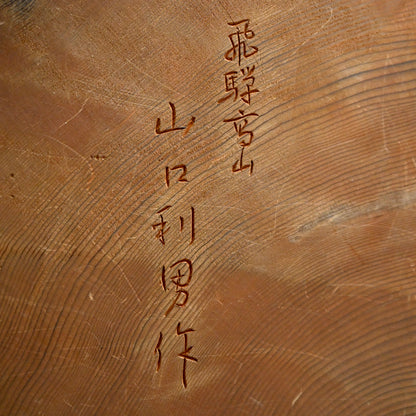 飛騨高山
山口利男作